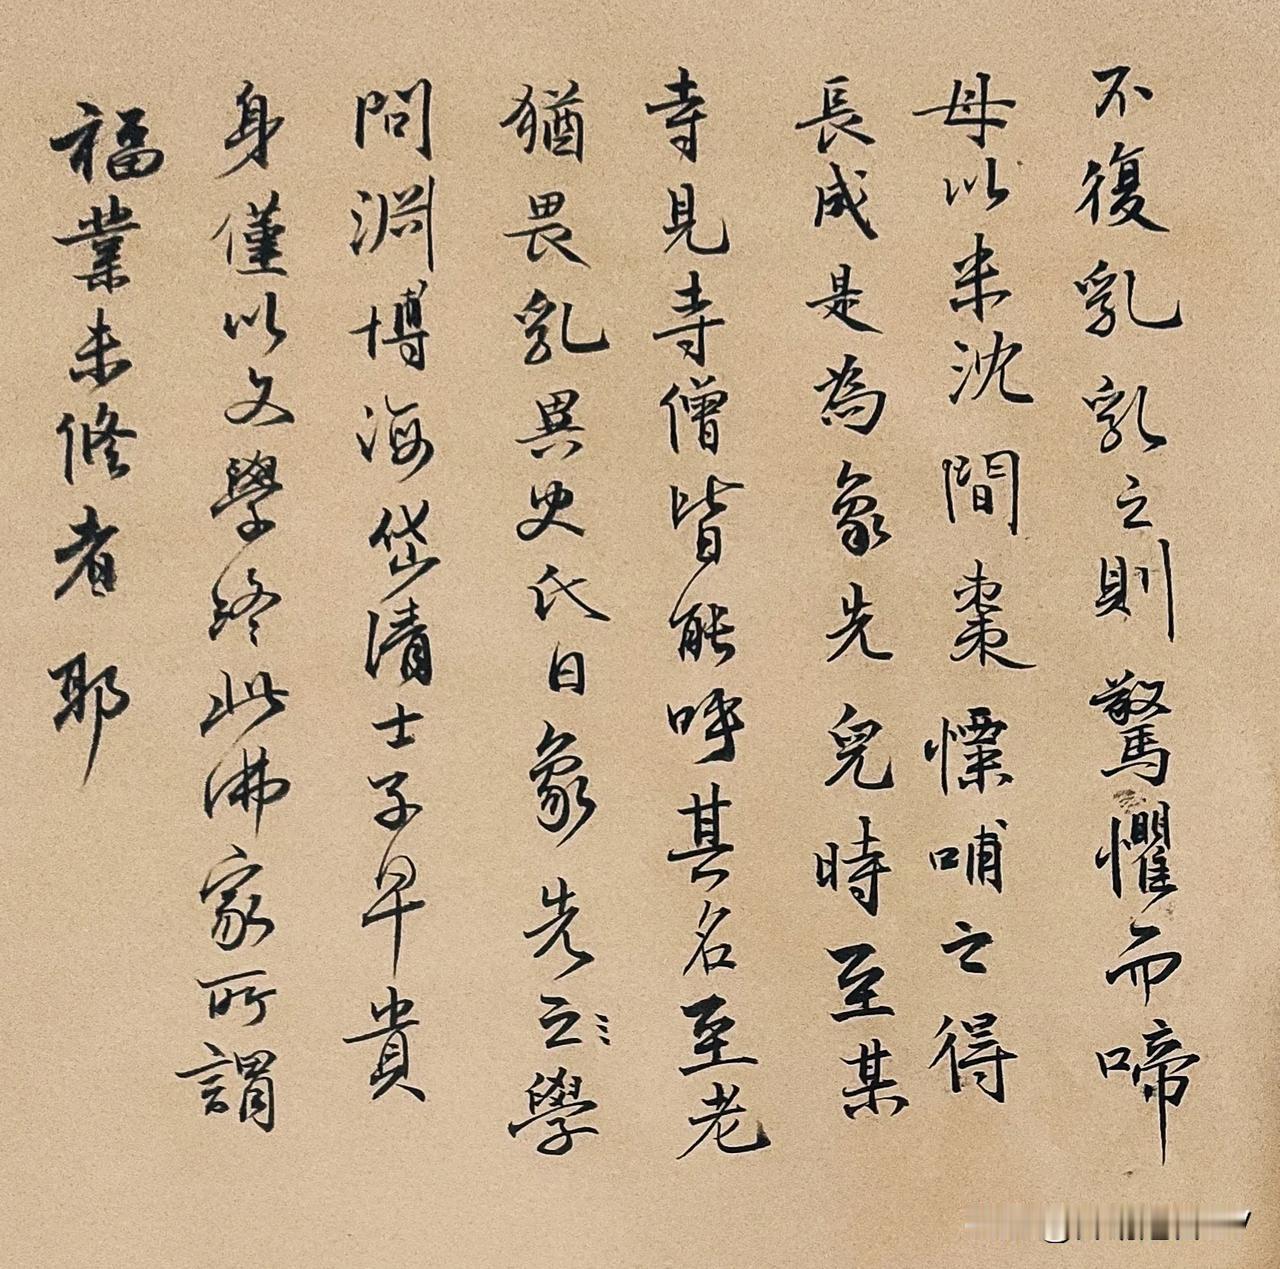 不復乳乳之則驚懼而啼
母以米沈間棗慄哺之得
長成是為象先兒時至某
寺見寺僧皆能呼其名至老
猶畏乳異史氏曰象先之學
問淵博海岱清士子早貴
身僅以文學終此佛家所謂
福業未修者耶